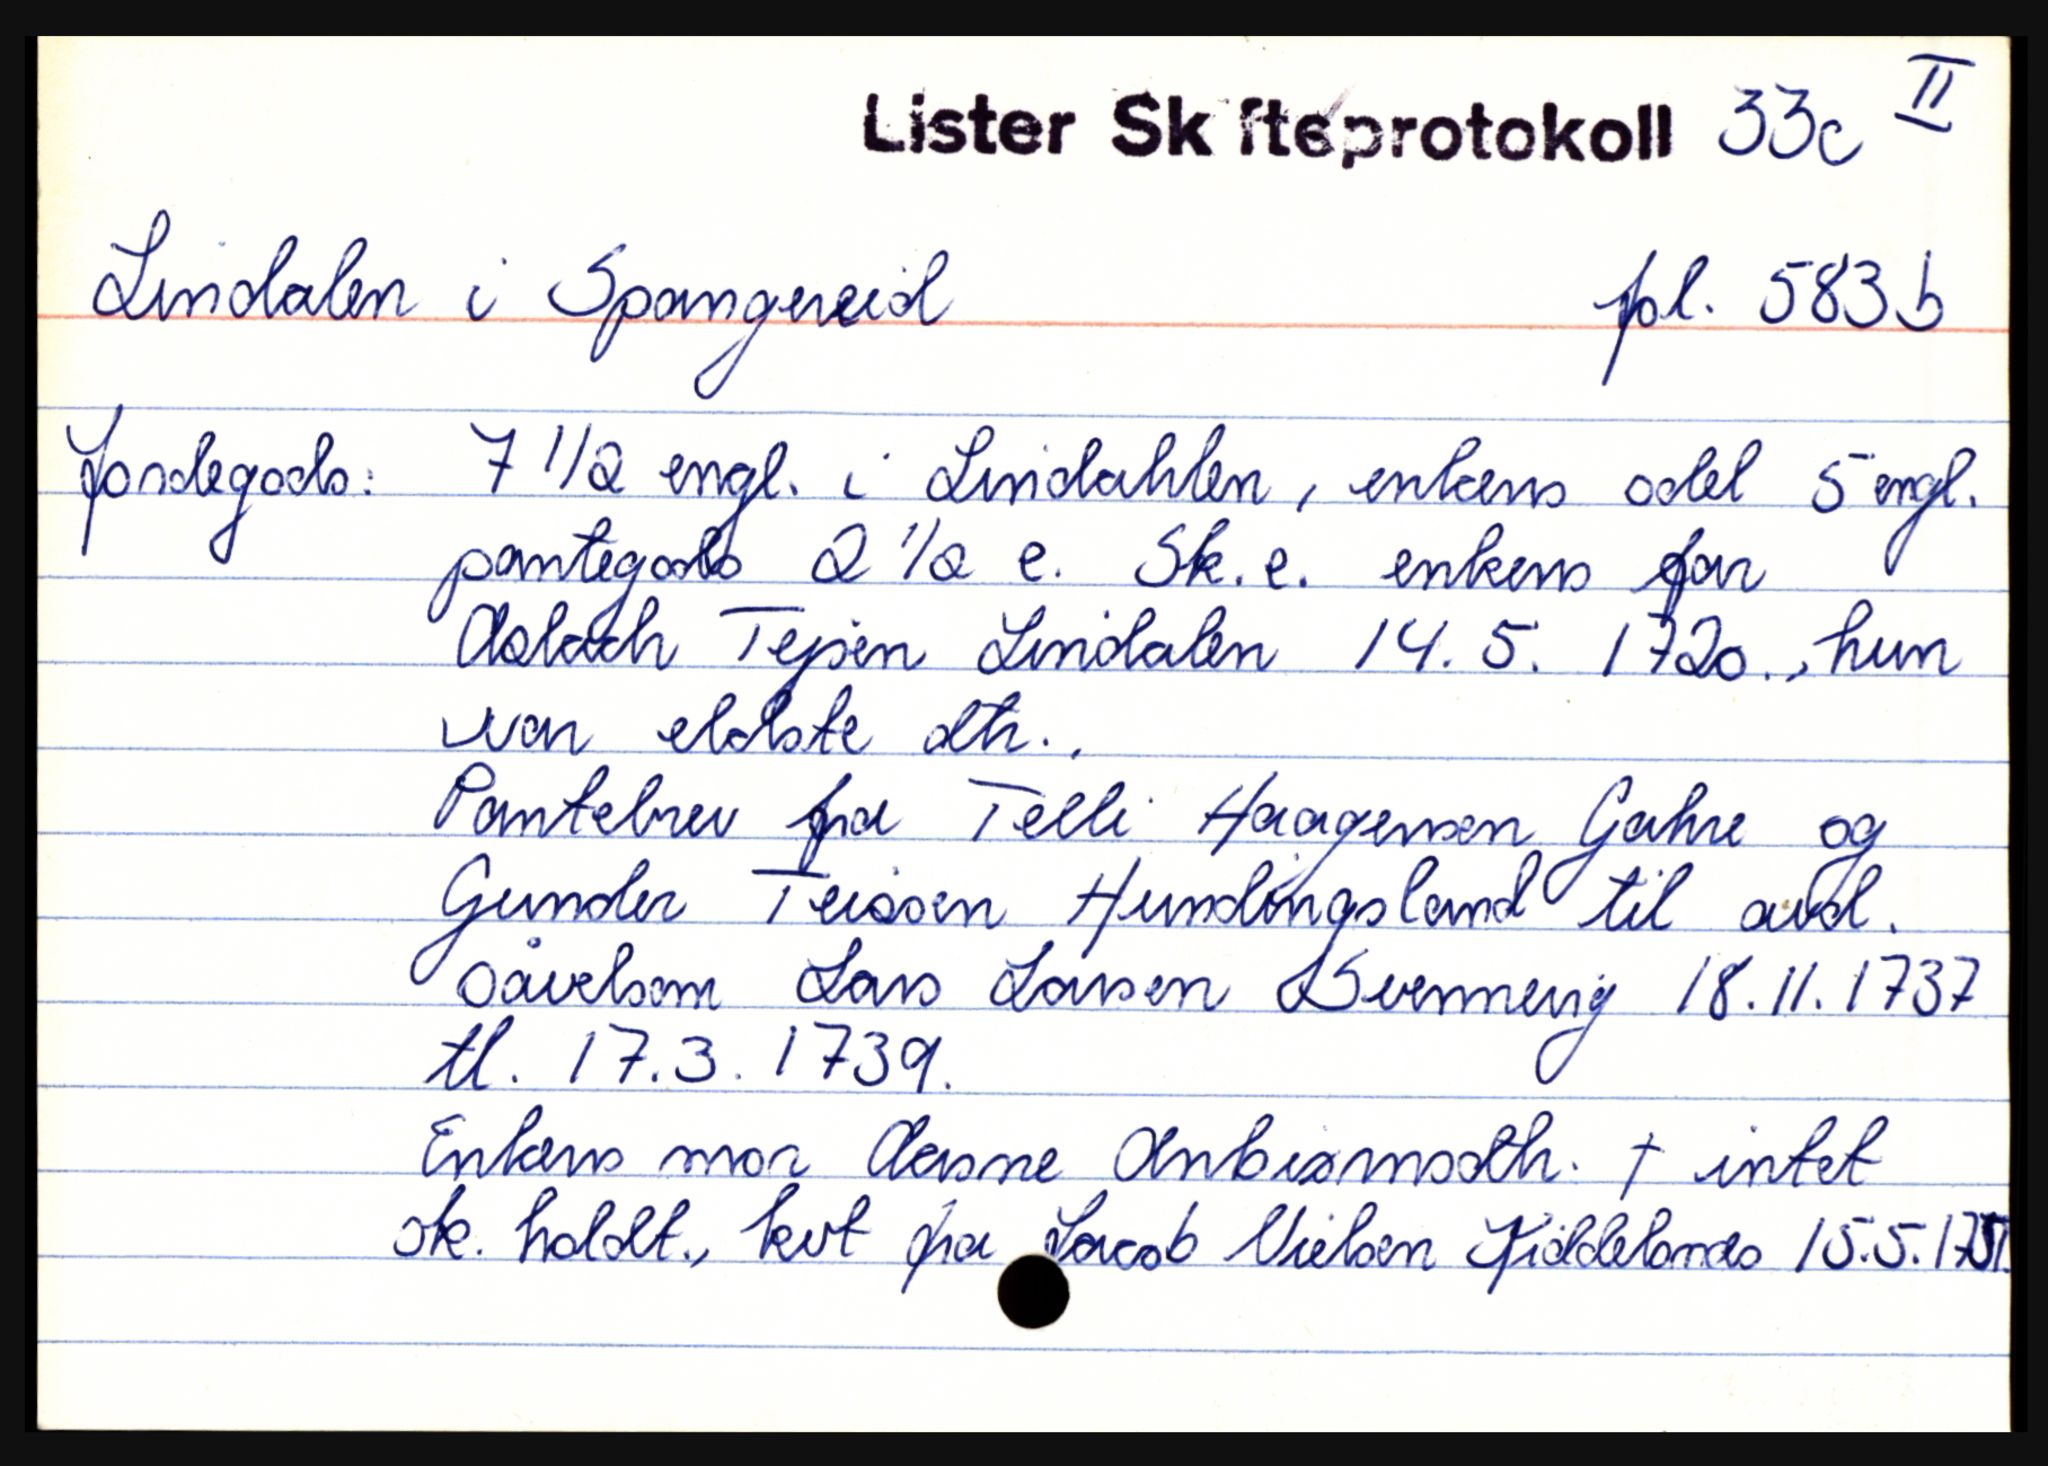 Lister Skifteprotokoll 33c II
Lindalen i Spangereid fol. 583 b
Jordegods: 7 1/2 engl. i Lindahlen, enkens odel 5 engl.
pantegods 2 1/2 e. Sk. e. enkens far
Aslach Tejsen Lindalen 14. 5. 1720., hun
var eldste dtr..
Pantebrev fra Telli Haagensen Gahre og
Gunder Teissen Hundingsland til avd.
såvelsom Lars Larsen Svennevig 18. 11. 1737
tl. 17. 3. 1739.
Enkens mor Aasne Anbiørnsdtr. † intet
sk. holdt., kvt fra Jacob Nielsen Kiddelands 15. 5. 1751.